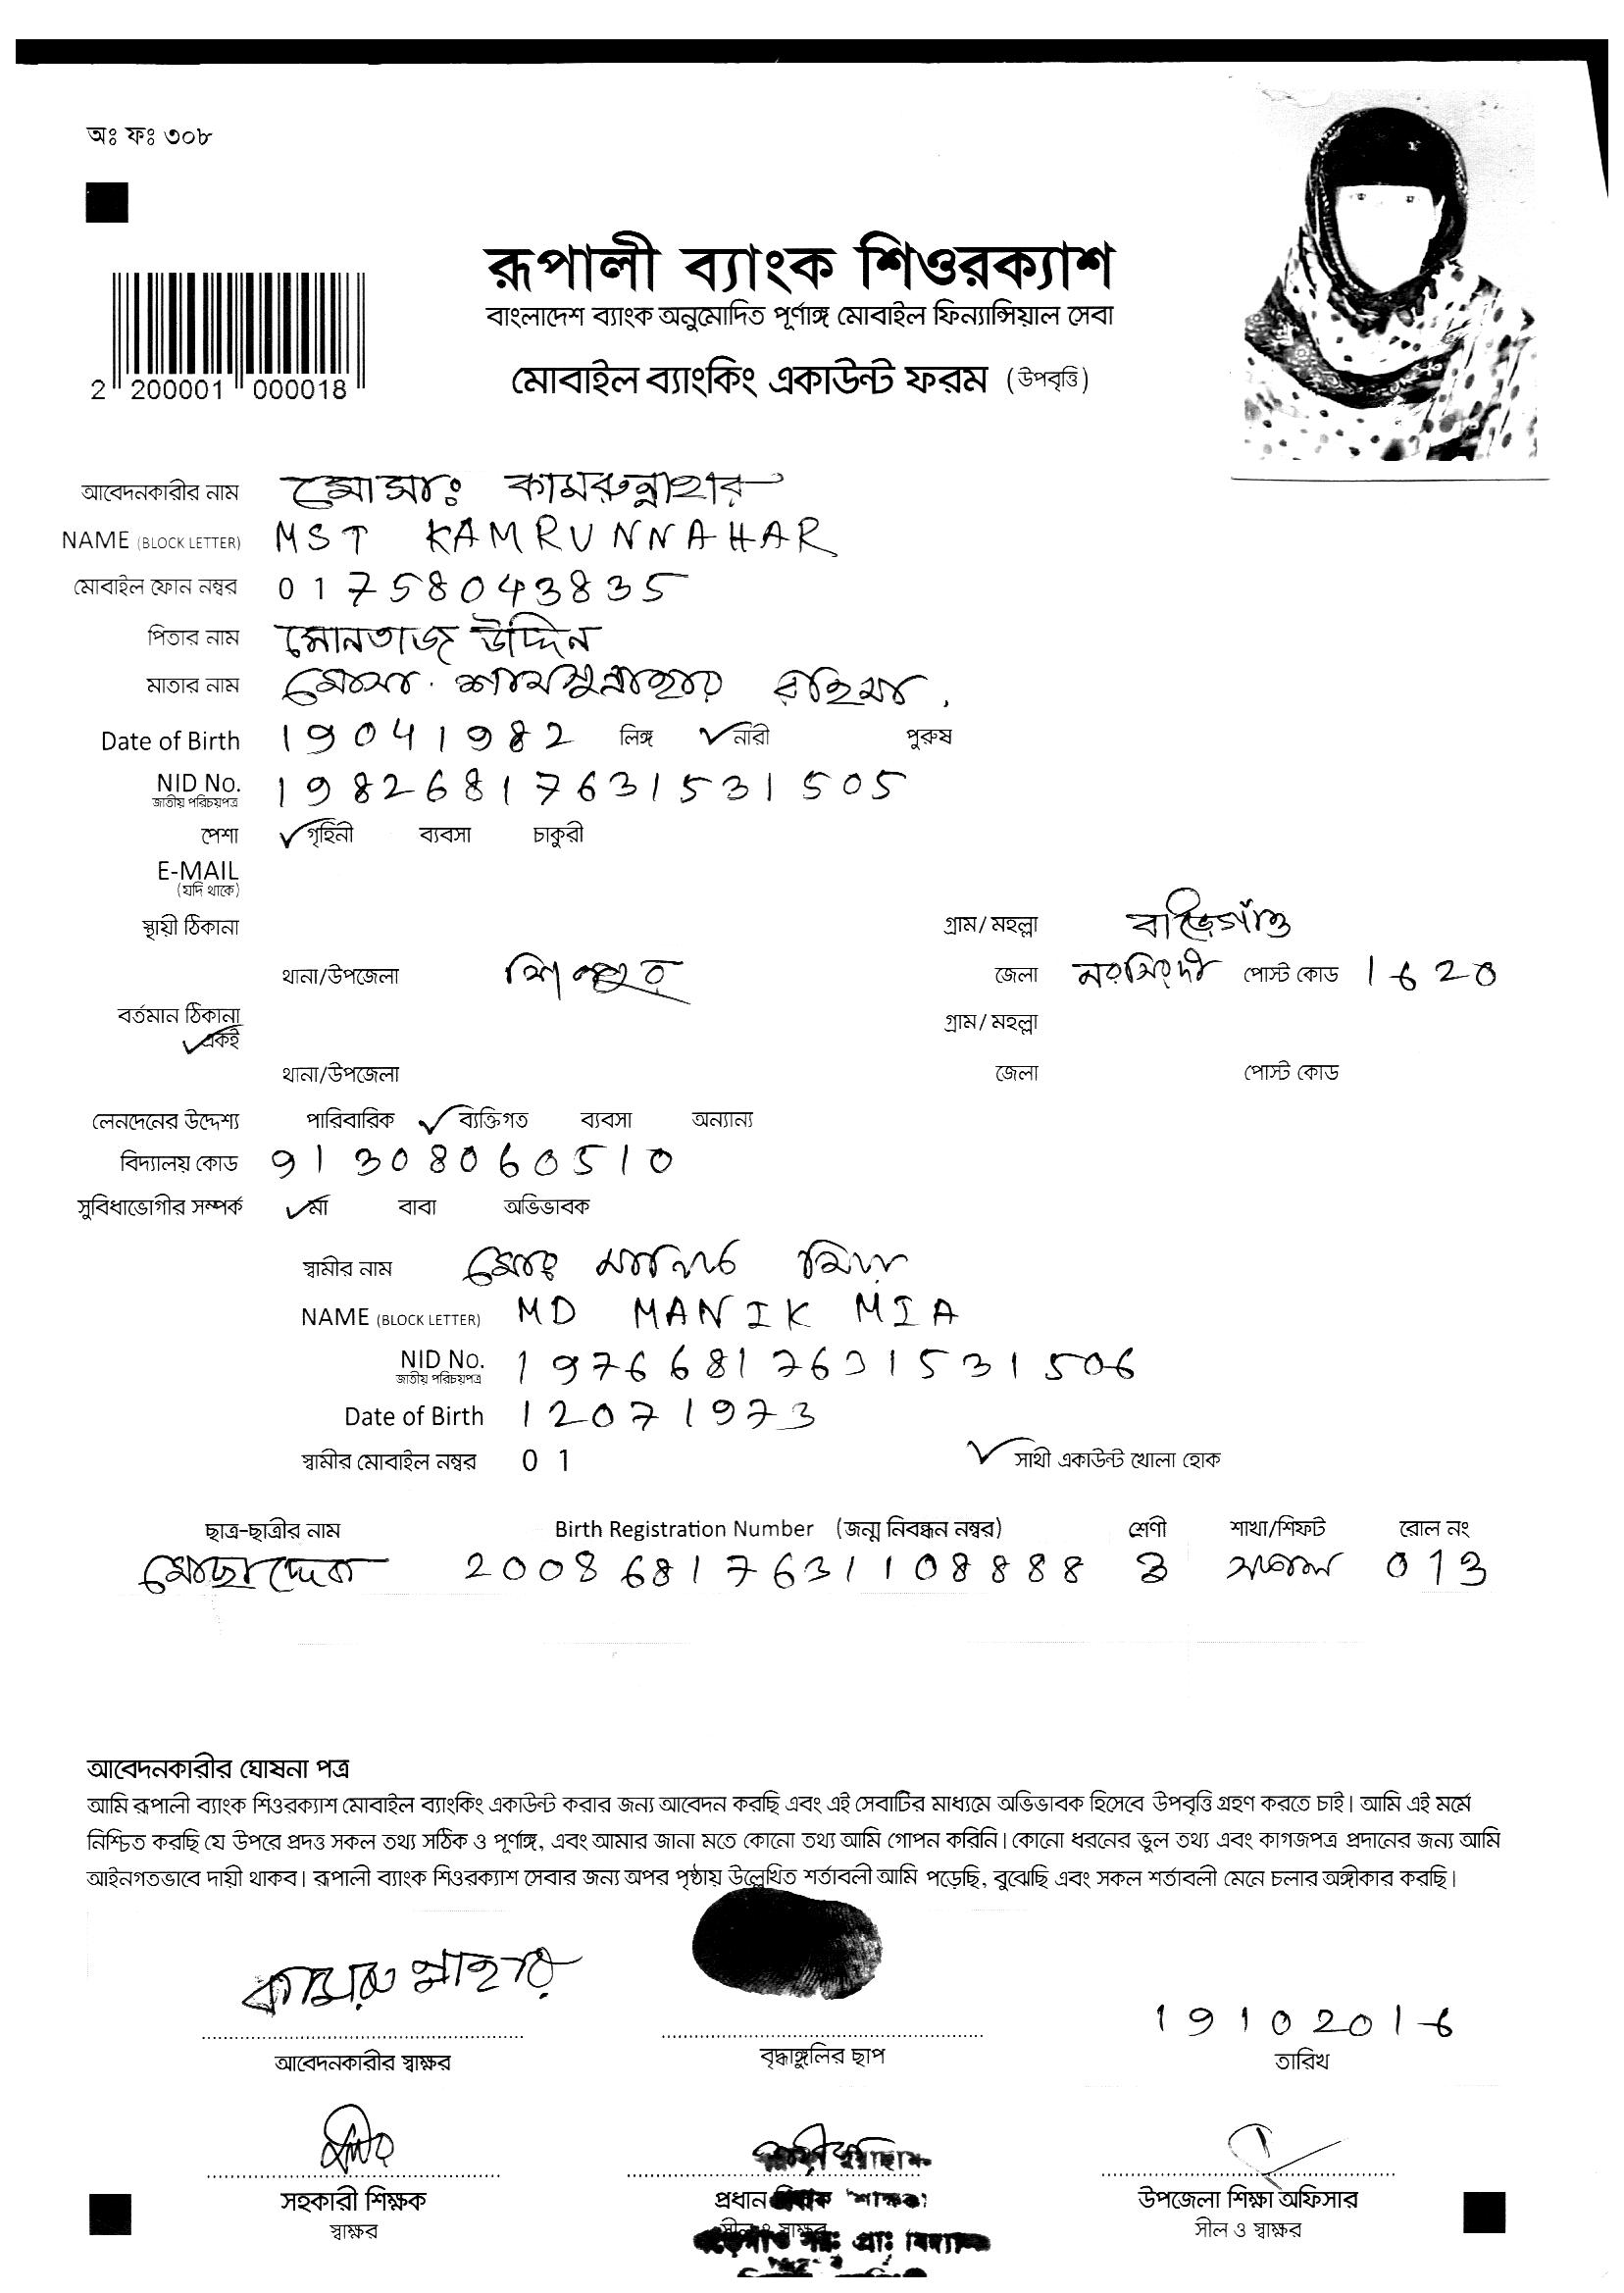 অঃ ফঃ ৩০৮
রূপালী ব্যাংক শিওরক্যাশ
বাংলাদেশ ব্যাংক অনুমোদিত পূর্ণাঙ্গ মোবাইল ফিন্যান্সিয়াল সেবা
মোবাইল ব্যাংকিং একাউন্ট ফরম (উপবৃত্তি)
2 200001 000018
আবেদনকারীর নাম মোসাঃ কামরুন্নাহার
NAME (BLOCK LETTER) MST KAMRUNNAHAR
মোবাইল ফোন নম্বর 01758043835
পিতার নাম মোনতাজ উদ্দিন
মাতার নাম মোসা. শামসুন্নাহার রহিমা
Date of Birth 19041982 লিঙ্গ নারী পুরুষ
NID No. 19826817631531505
জাতীয় পরিচয়পত্র
পেশা গৃহিনী ব্যবসা চাকুরী
E-MAIL
(যদি থাকে)
স্থায়ী ঠিকানা গ্রাম/মহল্লা
থানা/উপজেলা শিবপুর জেলা নরসিংদী পোস্ট কোড 1620
বর্তমান ঠিকানা গ্রাম/মহল্লা
একই
থানা/উপজেলা জেলা পোস্ট কোড
লেনদেনের উদ্দেশ্য পারিবারিক ব্যক্তিগত ব্যবসা অন্যান্য
বিদ্যালয় কোড 91308060510
সুবিধাভোগীর সম্পর্ক মা বাবা অভিভাবক
স্বামীর নাম মোঃ মানিক মিয়া
NAME (BLOCK LETTER) MD MANIK MIA
NID No. 19766817631531506
জাতীয় পরিচয়পত্র
Date of Birth 12071973
স্বামীর মোবাইল নম্বর 01 সাথী একাউন্ট খোলা হোক
ছাত্র-ছাত্রীর নাম Birth Registration Number (জন্ম নিবন্ধন নম্বর) শ্রেণী শাখা/শিফট রোল নং
মোছাদ্দেক 20086817631108888 3 সকাল 013
আবেদনকারীর ঘোষনা পত্র
আমি রূপালী ব্যাংক শিওরক্যাশ মোবাইল ব্যাংকিং একাউন্ট করার জন্য আবেদন করছি এবং এই সেবাটির মাধ্যমে অভিভাবক হিসেবে উপবৃত্তি গ্রহণ করতে চাই। আমি এই মর্মে
নিশ্চিত করছি যে উপরে প্রদত্ত সকল তথ্য সঠিক ও পূর্ণাঙ্গ, এবং আমার জানা মতে কোনো তথ্য আমি গোপন করিনি। কোনো ধরনের ভুল তথ্য এবং কাগজপত্র প্রদানের জন্য আমি
আইনগতভাবে দায়ী থাকব। রূপালী ব্যাংক শিওরক্যাশ সেবার জন্য অপর পৃষ্ঠায় উল্লেখিত শর্তাবলী আমি পড়েছি, বুঝেছি এবং সকল শর্তাবলী মেনে চলার অঙ্গীকার করছি।
কামরুন্নাহার
19102016
আবেদনকারীর স্বাক্ষর বৃদ্ধাঙ্গুলির ছাপ তারিখ
সহকারী শিক্ষক প্রধান শিক্ষক উপজেলা শিক্ষা অফিসার
স্বাক্ষর সীল ও স্বাক্ষর সীল ও স্বাক্ষর
সরঃ প্রাঃ